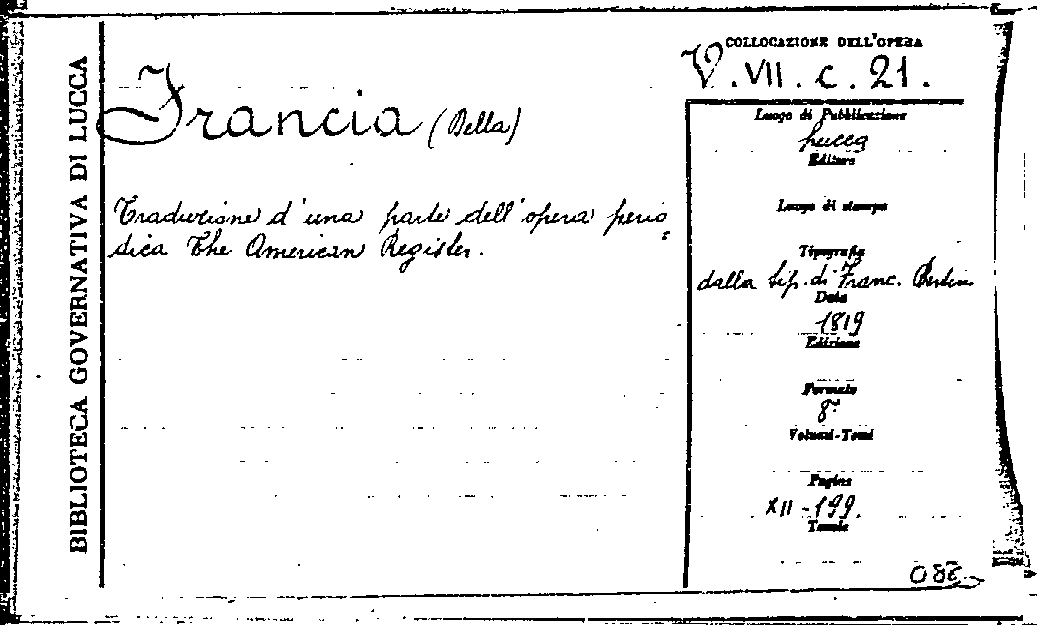 BIBLIOTECA GOVERNATIVA DI LUCCA
Francia (Della)
Traduzione d'una parte dell'opera perio
dica The American Register.
COLLOCAZIONE DELL'OPERA
V. VII. c. 21.
Luogo di Pubblicazione
Lucca
Editore
Luogo di stampa
Tipografia
dalla tip. di Franc. Bertini
Data
1819
Edizione
Formato
8°
Volumi-Tomi
Pagine
XII-199.
Tavole